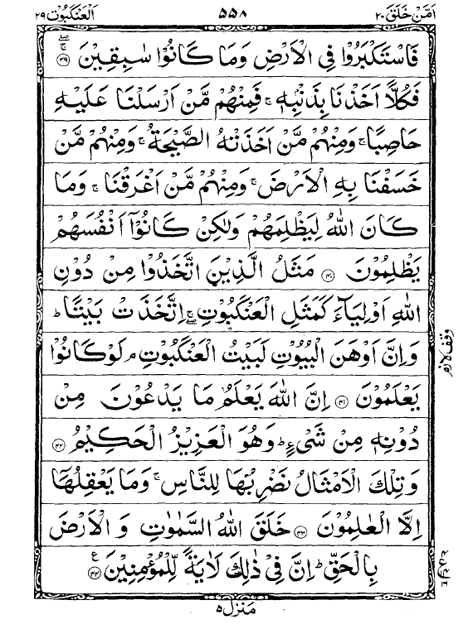 اَمَّنْ خَلَقَ ٢٠ ٥٥٨ اَلْعَنْكَبُوْت ٢٩
فَاسْتَكْبَرُوْا فِى الْاَرْضِ وَمَا كَانُوْا سٰبِقِيْنَ ۝٣٩
فَكُلًّا اَخَذْنَا بِذَنْۢبِهٖ ۚ فَمِنْهُمْ مَّنْ اَرْسَلْنَا عَلَيْهِ
حَاصِبًا ۚ وَمِنْهُمْ مَّنْ اَخَذَتْهُ الصَّيْحَةُ ۚ وَمِنْهُمْ مَّنْ
خَسَفْنَا بِهِ الْاَرْضَ ۚ وَمِنْهُمْ مَّنْ اَغْرَقْنَا ۚ وَمَا
كَانَ اللّٰهُ لِيَظْلِمَهُمْ وَلٰكِنْ كَانُوْٓا اَنْفُسَهُمْ
يَظْلِمُوْنَ ۝٤٠ مَثَلُ الَّذِيْنَ اتَّخَذُوْا مِنْ دُوْنِ
اللّٰهِ اَوْلِيَآءَ كَمَثَلِ الْعَنْكَبُوْتِ ۚۖ اِتَّخَذَتْ بَيْتًا ؕ
وَاِنَّ اَوْهَنَ الْبُيُوْتِ لَبَيْتُ الْعَنْكَبُوْتِ ۘ لَوْ كَانُوْا
يَعْلَمُوْنَ ۝٤١ اِنَّ اللّٰهَ يَعْلَمُ مَا يَدْعُوْنَ مِنْ
دُوْنِهٖ مِنْ شَىْءٍ ؕ وَهُوَ الْعَزِيْزُ الْحَكِيْمُ ۝٤٢
وَتِلْكَ الْاَمْثَالُ نَضْرِبُهَا لِلنَّاسِ ۚ وَمَا يَعْقِلُهَآ
اِلَّا الْعٰلِمُوْنَ ۝٤٣ خَلَقَ اللّٰهُ السَّمٰوٰتِ وَ الْاَرْضَ
بِالْحَقِّ ؕ اِنَّ فِىْ ذٰلِكَ لَاٰيَةً لِّلْمُؤْمِنِيْنَ ۝٤٤
وقف لازم
منزل ٥